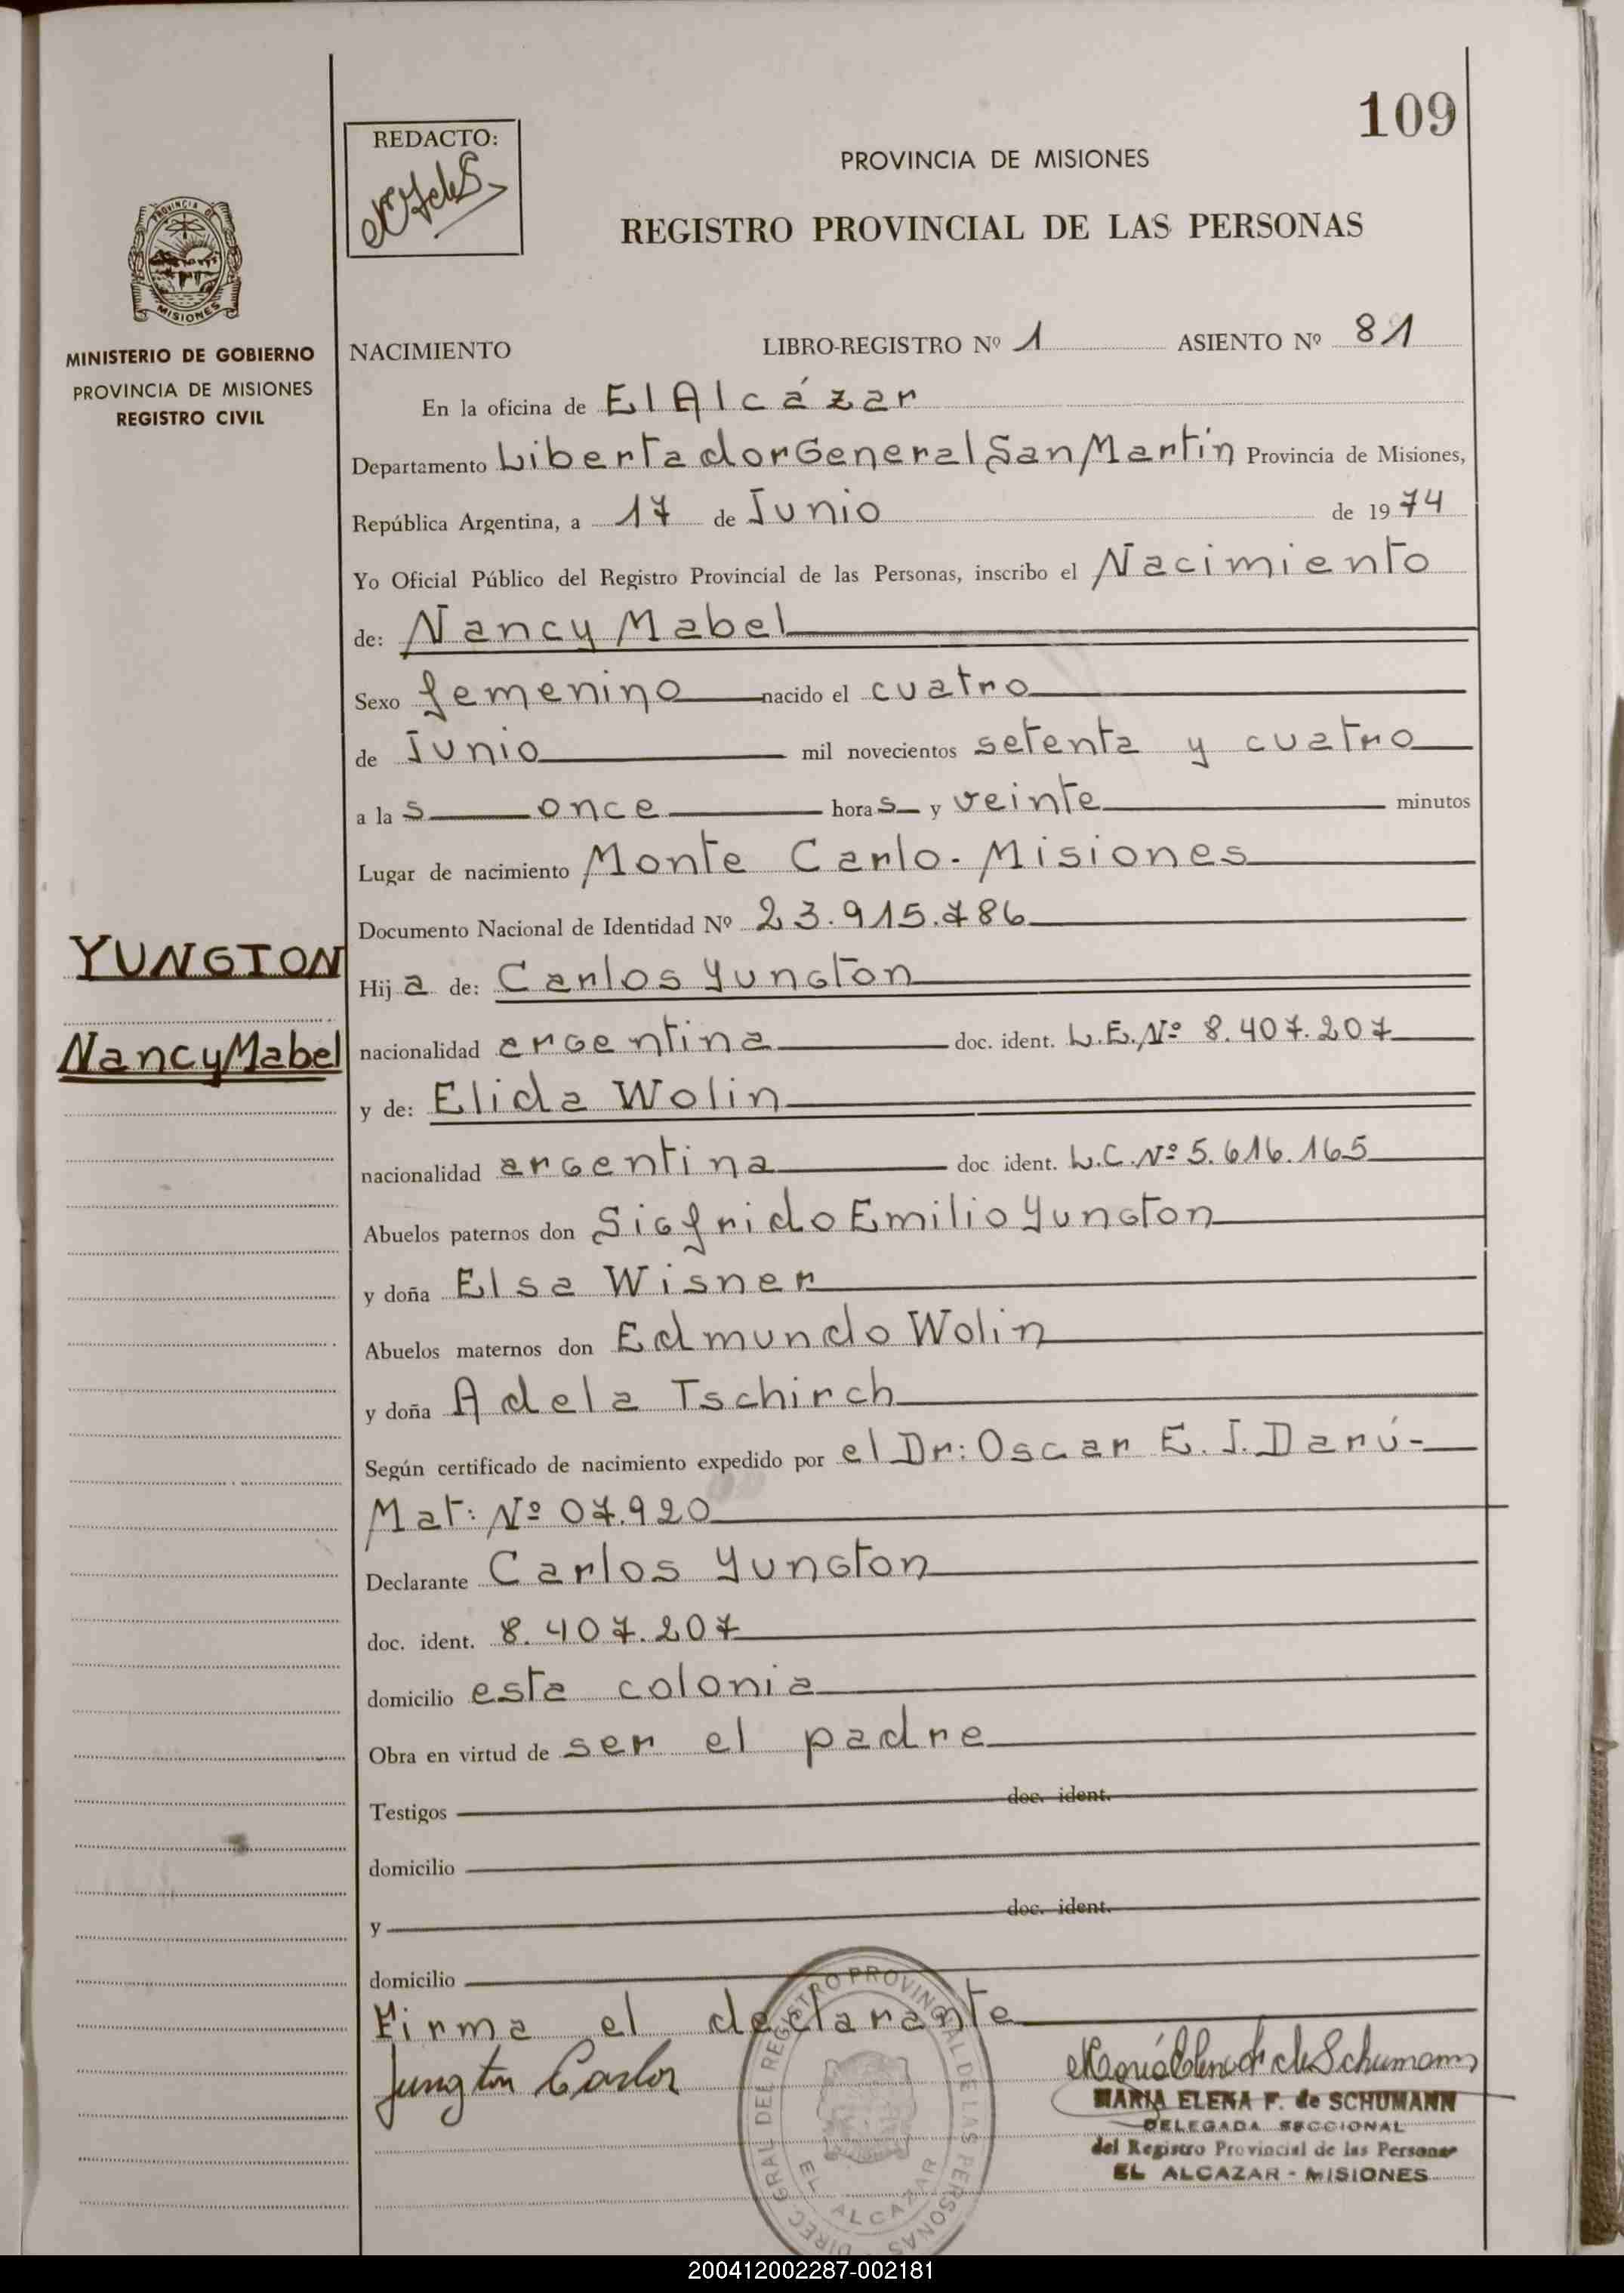 109
REDACTO:
PROVINCIA DE MISIONES
REGISTRO PROVINCIAL DE LAS PERSONAS
PROVINCIA DE
MISIONES
MINISTERIO DE GOBIERNO
PROVINCIA DE MISIONES
REGISTRO CIVIL
NACIMIENTO LIBRO-REGISTRO Nº 1 ASIENTO Nº 81
En la oficina de El Alcázar
Departamento Libertador General San Martín Provincia de Misiones,
República Argentina, a 17 de Junio de 1974
Yo Oficial Público del Registro Provincial de las Personas, inscribo el Nacimiento
de: Nancy Mabel
Sexo femenino nacido el cuatro
de Junio mil novecientos setenta y cuatro
a las once horas y veinte minutos
Lugar de nacimiento Monte Carlo - Misiones
Documento Nacional de Identidad Nº 23.915.786
YUNGTON
Hija de: Carlos Yungton
Nancy Mabel
nacionalidad argentina doc. ident. L.E. Nº 8.407.207
y de: Elida Wolin
nacionalidad argentina doc ident. L.C. Nº 5.616.165
Abuelos paternos don Sigfrido Emilio Yungton
y doña Elsa Wisner
Abuelos maternos don Edmundo Wolin
y doña Adela Tschirch
Según certificado de nacimiento expedido por el Dr: Oscar E. J. Darú-
Mat: Nº 07.920
Declarante Carlos Yungton
doc. ident. 8.407.207
domicilio esta colonia
Obra en virtud de ser el padre
Testigos doc. ident.
domicilio
y doc. ident.
domicilio
Firma el declarante
Jungton Carlos
María Elena F. de Schumann
MARIA ELENA F. de SCHUMANN
DELEGADA SECCIONAL
del Registro Provincial de las Personas
EL ALCAZAR - MISIONES
DIREC GRAL DEL REGISTRO PROVINCIAL DE LAS PERSONAS
EL ALCAZAR
200412002287-002181